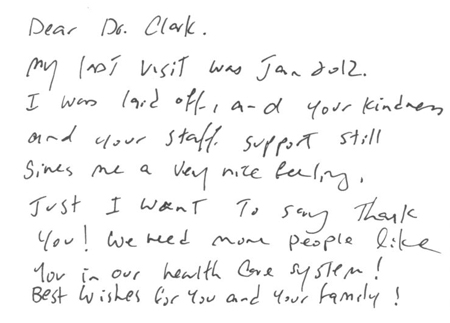 Dear Dr. Clark.
My last visit was Jan 2012.
I was laid off, and your kindness
and your staff support still
Gives me a very nice feeling.
Just I want To say Thank
You! We need more people like
You in our health Care system!
Best Wishes for You and Your family!